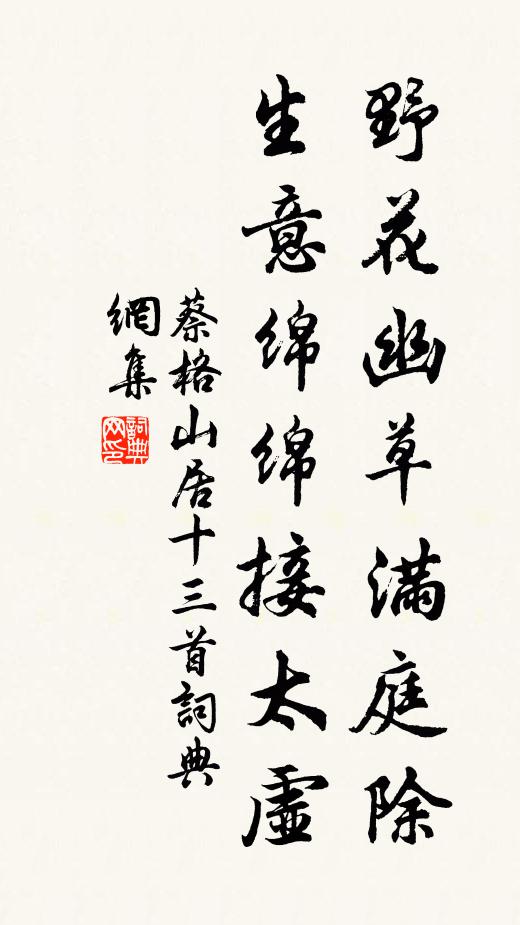 野花幽草满庭除
生意绵绵接太虚
蔡格山居十三首詞典
網集
詞典
网印